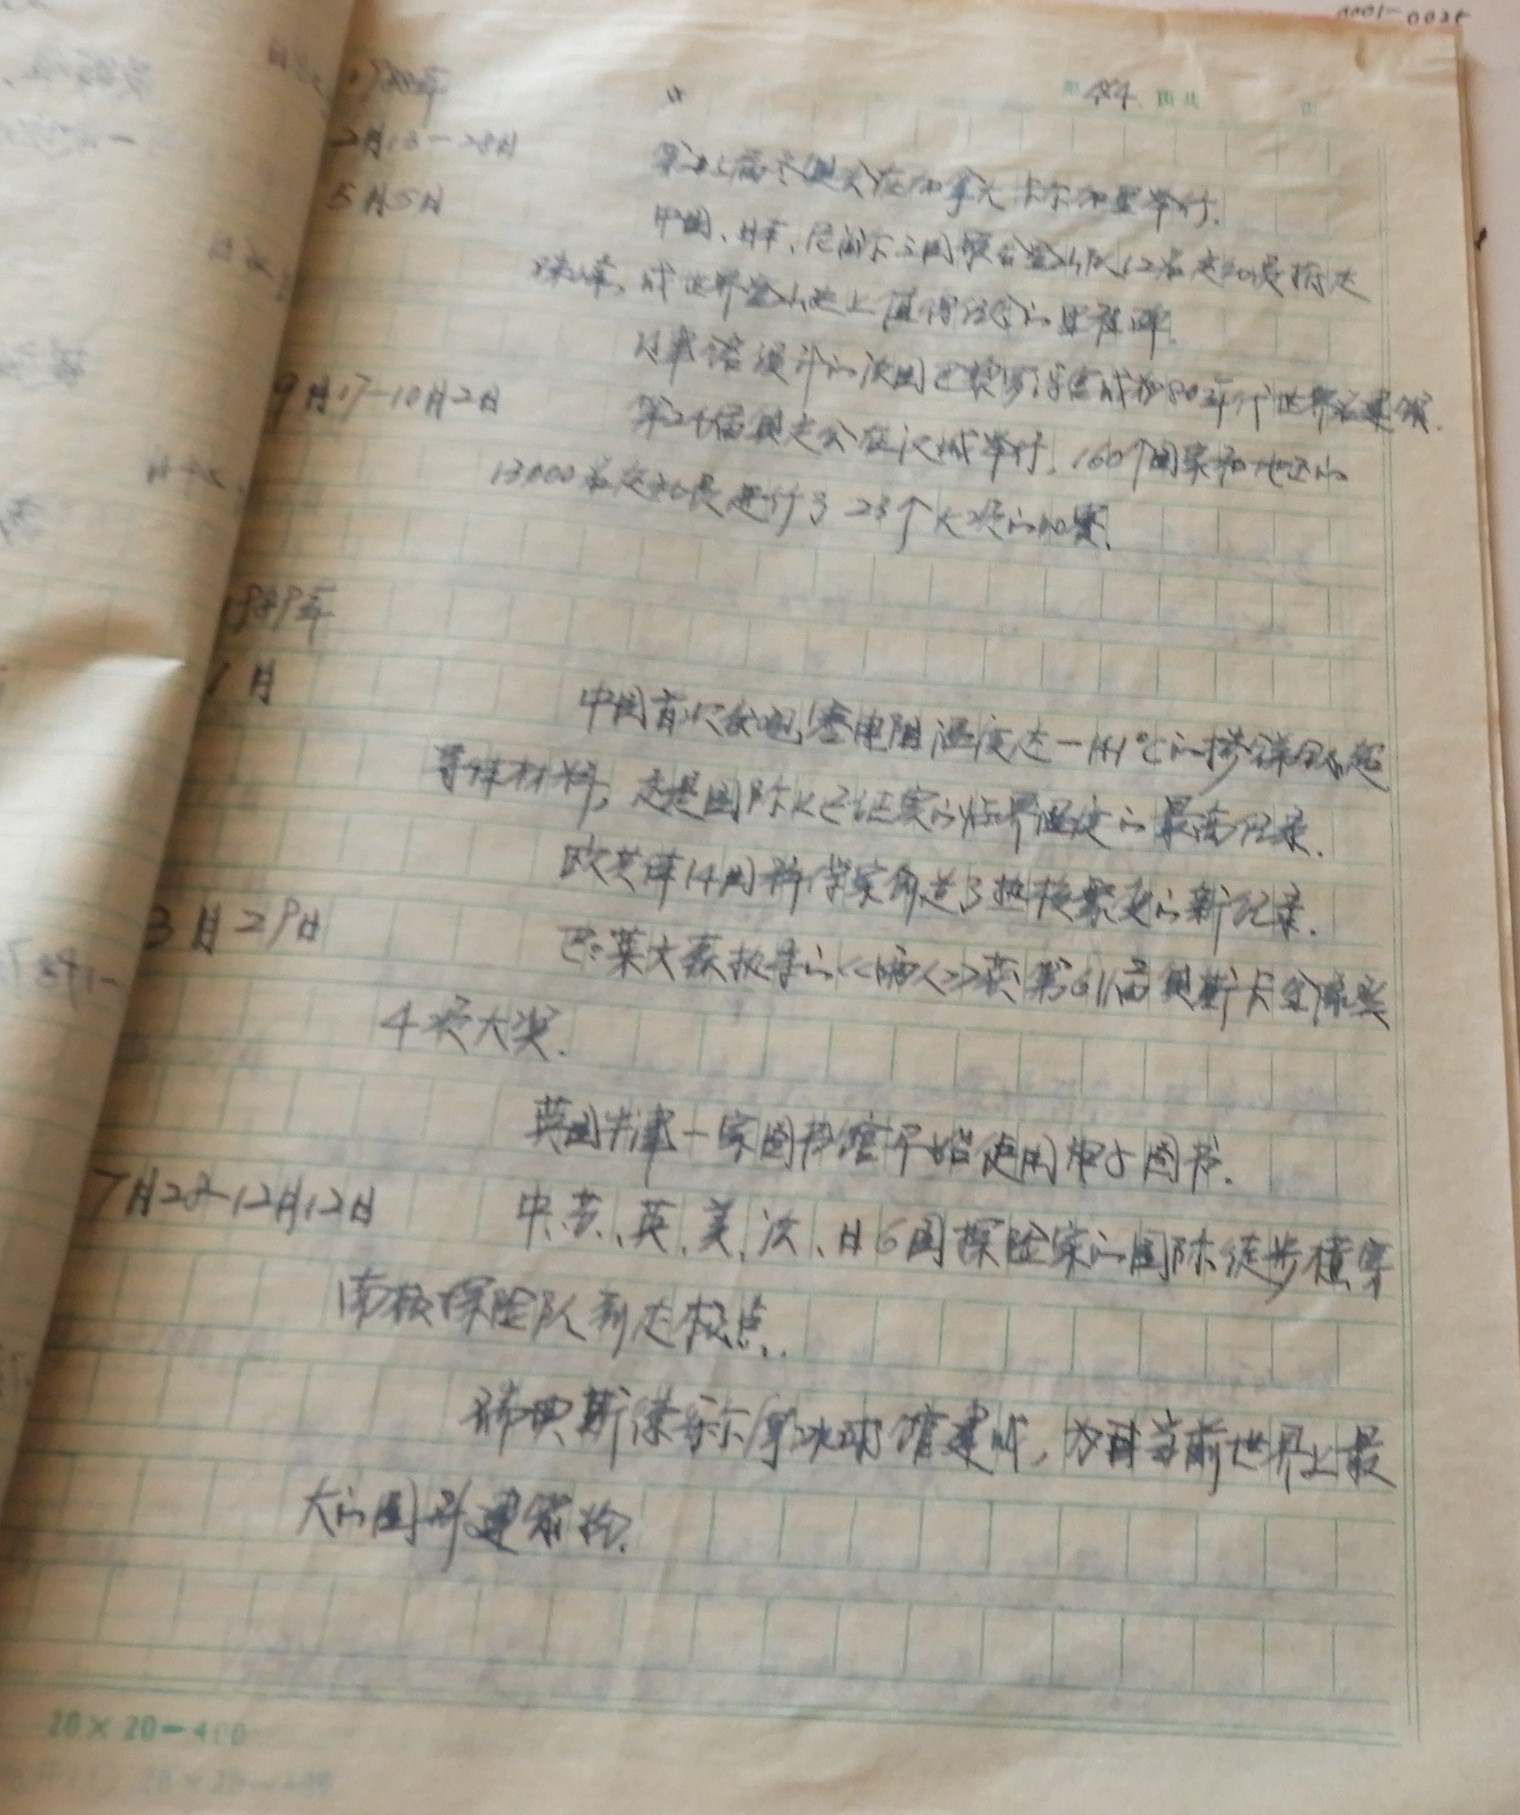 第 484 页共 页
1988年
2月13-28日 第15届冬奥会在加拿大卡尔加里举行.
5月5日 中国、日本、尼泊尔三国联合登山队12名运动员
珠峰, 成世界登山史上值得纪念的里程碑.
设计的法国巴黎罗浮宫成为80年代世界名建筑.
9月17-10月2日 第24届奥运会在汉城举行, 160个国家和地区的
13000名运动员进行了23个大项的比赛.
1989年
1月 中国首次发现零电阻温度达-141℃的掺锑铋超
导体材料, 这是国际上已证实的临界温度的最高纪录.
欧共体14国科学家创造了热核聚变的新纪录.
3月29日 巴里莱文森执导的《雨人》获第61届奥斯卡金像奖
4项大奖.
英国牛津一家图书馆开始使用电子图书.
7月28-12月12日 中、苏、英、美、法、日6国探险家的国际徒步横穿
南极探险队到达极点.
瑞典斯德哥尔摩冰球馆建成, 为当前世界上最
大的圆形建筑物.
20×20=400